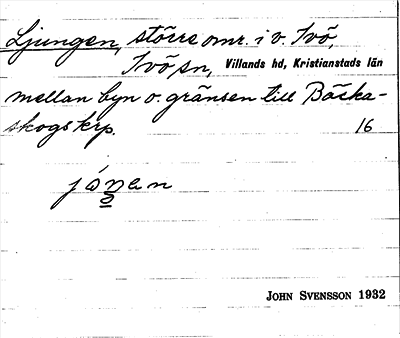 Ljungen, större omr. i v. Ivö,
Ivö sn, Villands hd, Kristianstads län
mellan byn o. gränsen till Bäcka-
skogs krp. 16
JOHN SVENSSON 1932